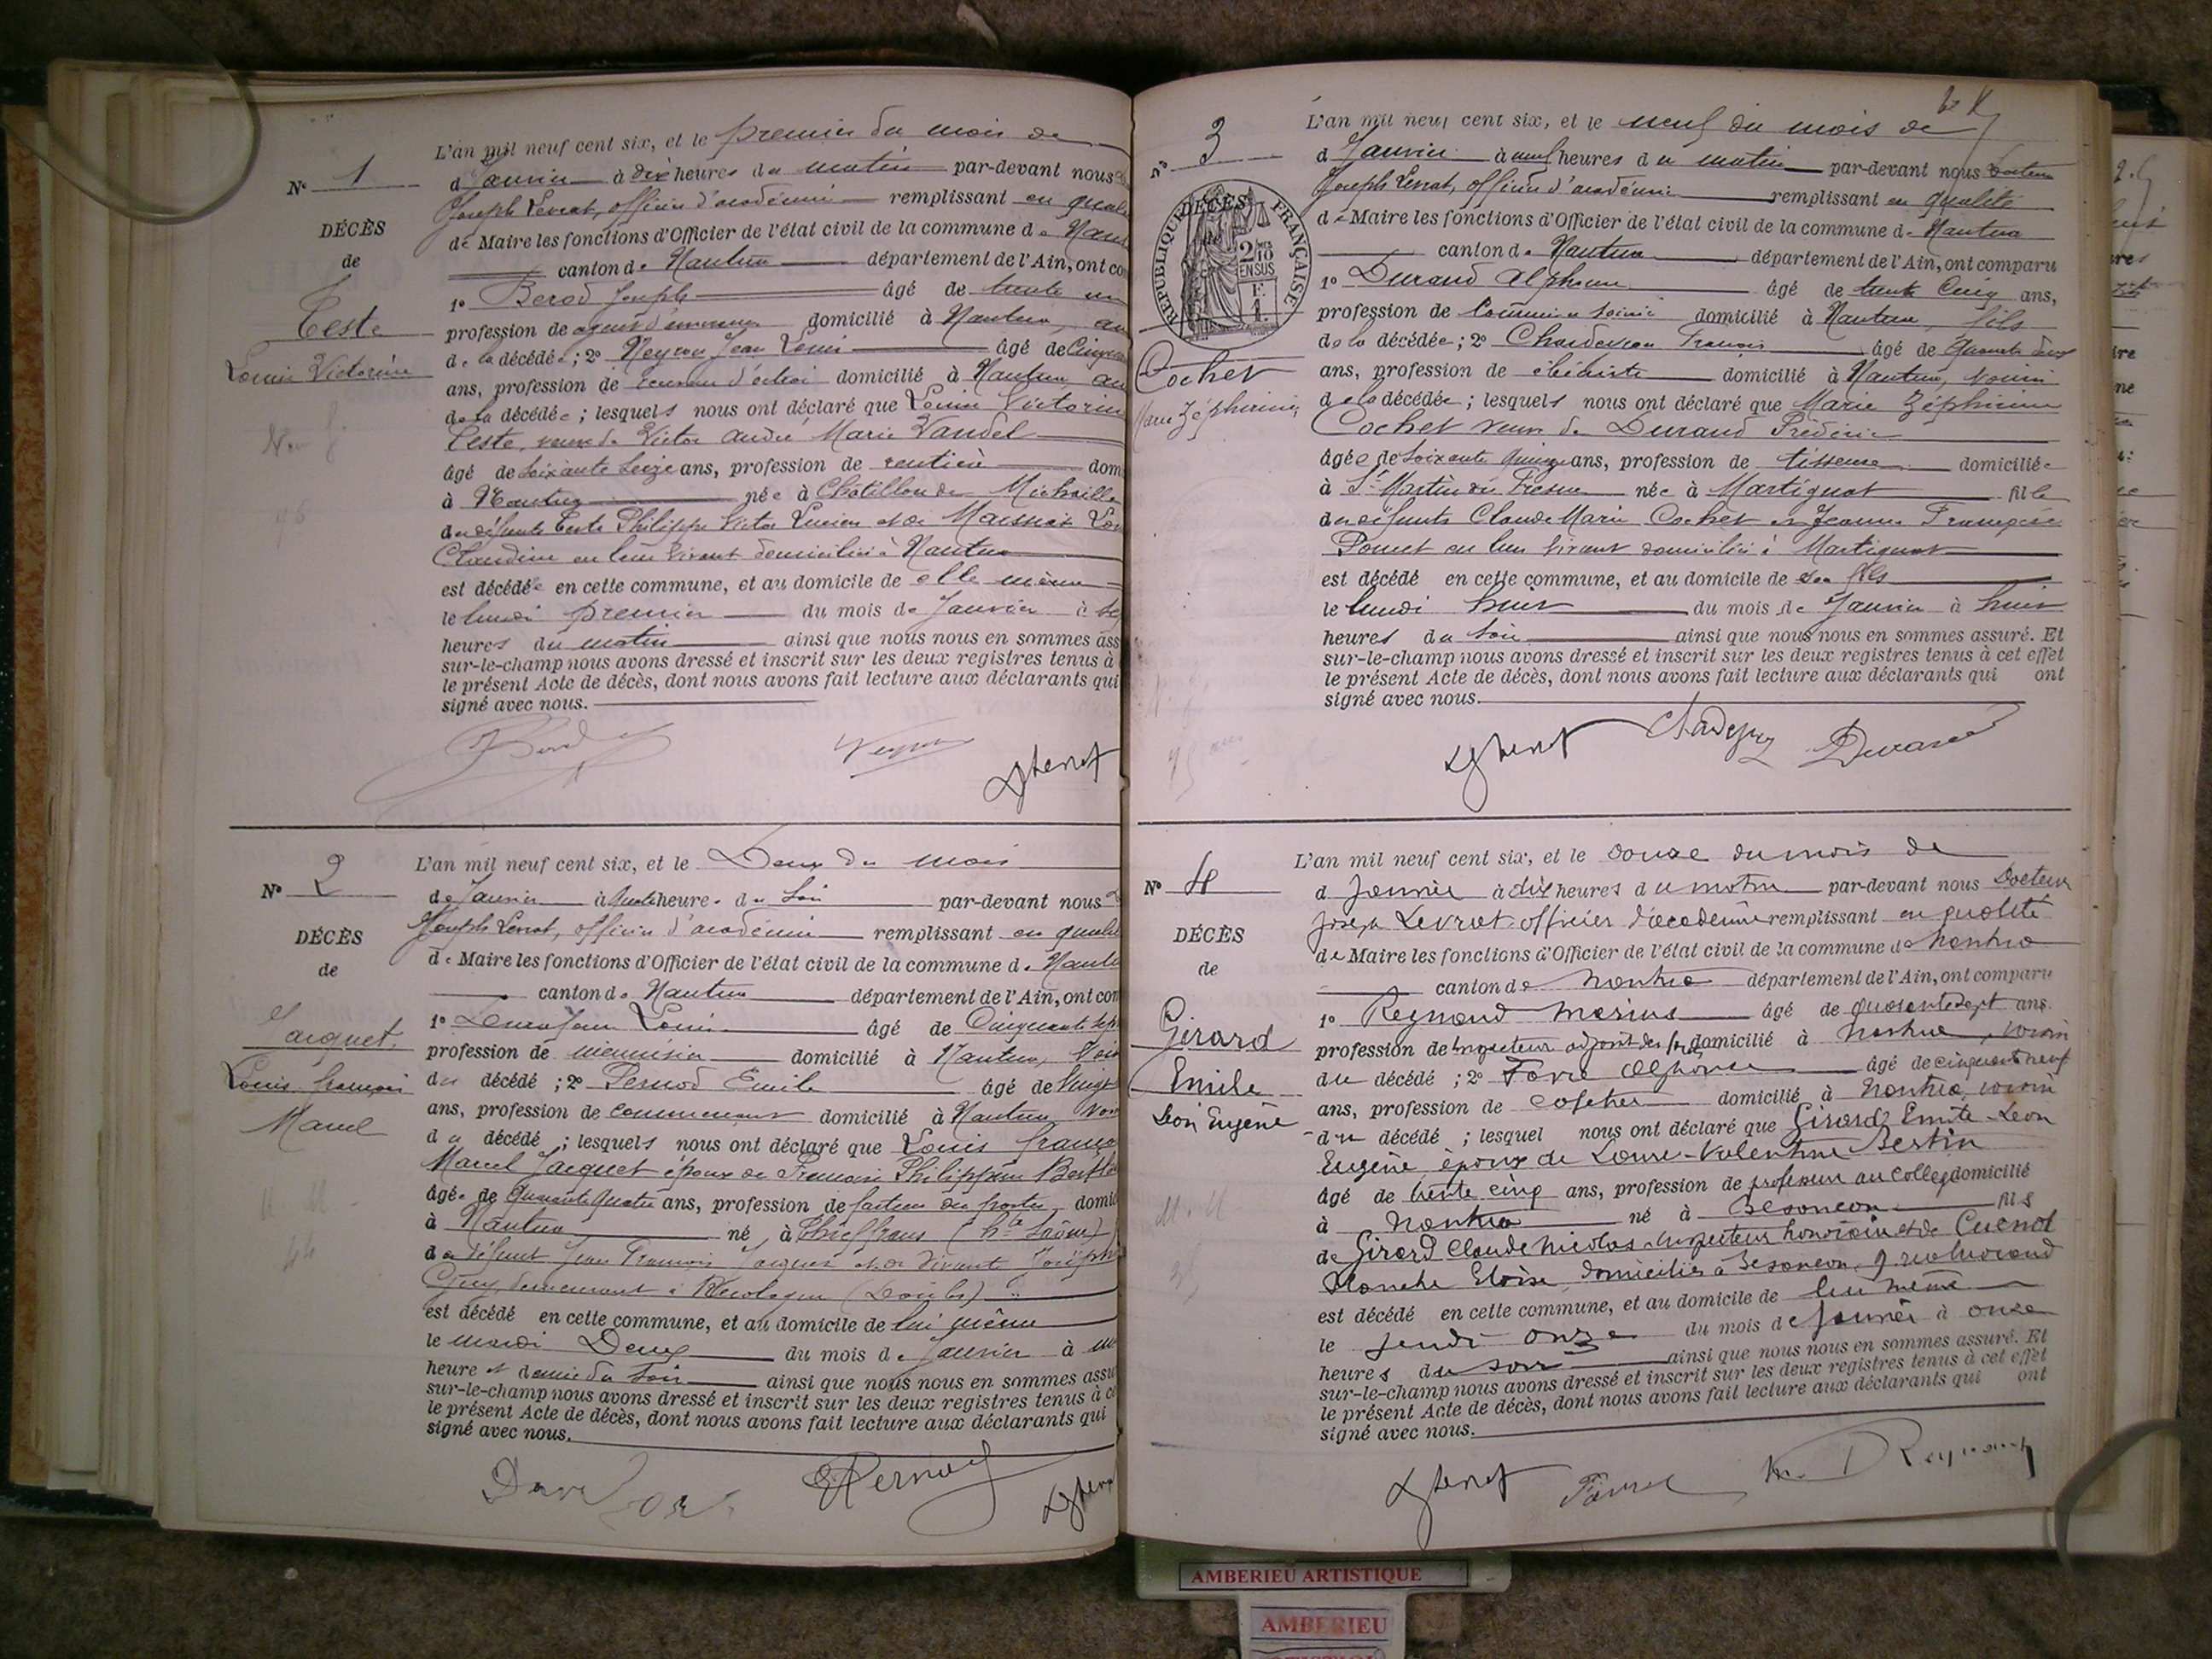 N° 1
DÉCÈS
de
Teste
Louise Victorine
L'an mil neuf cent six, et le premier du mois de
d Janvier à dix heures du matin par-devant nous
Joseph Levrat, officier d'académie remplissant en quali
de Maire les fonctions d'Officier de l'état civil de la commune de Nan
canton de Nantua département de l'Ain, ont co
1° Berod Joseph âgé de trente un
profession de agent d'assurances domicilié à Nantua,
de la décédée ; 2° Neyron Jean Louis âgé de
ans, profession de receveur d'octroi domicilié à Nantua
de la décédée ; lesquels nous ont déclaré que Louise Victorine
Teste, veuve de Victor André Marie Vandel
âgé de soixante seize ans, profession de rentière dom
à Nantua née à Châtillon de Michaille
du défunts Teste Philippe Victor Lucien et de
Claudine en leur vivant domiciliés à Nantua
est décédée en cette commune, et au domicile de elle même
le lundi premier du mois de Janvier à
heures du matin ainsi que nous nous en sommes ass
sur-le-champ nous avons dressé et inscrit sur les deux registres tenus à
le présent Acte de décès, dont nous avons fait lecture aux déclarants qui
signé avec nous.
N° 2
DÉCÈS
de
Jacquet
Louis françois
Marcel
L'an mil neuf cent six, et le Deux du mois
de Janvier à heures du soir par-devant nous
Joseph Levrat, officier d'académie remplissant en quali
de Maire les fonctions d'Officier de l'état civil de la commune de Nantu
canton de Nantua département de l'Ain, ont com
1° Louis âgé de Cinquante sept
profession de menuisier domicilié à Nantua, Voisin
du décédé ; 2° Pernod Emile âgé de Vingt
ans, profession de commerçant domicilié à Nantua
du décédé ; lesquels nous ont déclaré que Louis franço
Marcel Jacquet époux de Philippine
âgé de Quarante quatre ans, profession de facteur des postes domic
à Nantua né à (Hte Saône)
du défunt Jean François Jacquet et de vivante Joséph
demeurant à (Doubs)
est décédé en cette commune, et au domicile de lui même
le mardi Deux du mois de Janvier à une
heure et demie du soir ainsi que nous nous en sommes assu
sur-le-champ nous avons dressé et inscrit sur les deux registres tenus à ce
le présent Acte de décès, dont nous avons fait lecture aux déclarants qui
signé avec nous.
N° 3
RÉPUBLIQUE FRANÇAISE
DÉCÈS
de
2 MES
10
EN SUS
F.
1.
Cochet
Marie Zéphirine
L'an mil neuf cent six, et le neuf du mois de
d Janvier à neuf heures du matin par-devant nous Docteur
Joseph Levrat, officier d'académie remplissant en qualité
de Maire les fonctions d'Officier de l'état civil de la commune de Nantua
canton de Nantua département de l'Ain, ont comparu
1° Durand Alphonse âgé de trente cinq ans,
profession de domicilié à Nantua, fils
de la décédée ; 2° François âgé de Quarante deux
ans, profession de ébéniste domicilié à Nantua, voisin
de la décédée ; lesquels nous ont déclaré que Marie Zéphirine
Cochet veuve de Durand Frédéric
âgée de soixante quinze ans, profession de tisseuse domiciliée
à St Martin du Fresne née à Martignat fille
du défunts Claude Marie Cochet et Jeanne Françoise
Poncet en leur vivant domiciliés à Martignat
est décédé en cette commune, et au domicile de son fils
le lundi huit du mois de Janvier à huit
heures du soir ainsi que nous nous en sommes assuré. Et
sur-le-champ nous avons dressé et inscrit sur les deux registres tenus à cet effet
le présent Acte de décès, dont nous avons fait lecture aux déclarants qui ont
signé avec nous.
Durand
N° 4
DÉCÈS
de
Girard
Emile
Léon Eugène
L'an mil neuf cent six, et le douze du mois de
d Janvier à dix heures du matin par-devant nous Docteur
Joseph Levrat officier d'académie remplissant en qualité
de Maire les fonctions d'Officier de l'état civil de la commune de Nantua
canton de Nantua département de l'Ain, ont comparu
1° Reymond Marius âgé de quarante sept ans
profession de Inspecteur adjoint des forêts domicilié à Nantua, voisin
du décédé ; 2° Favre Alphonse âgé de cinquante neuf
ans, profession de cafetier domicilié à Nantua, voisin
du décédé ; lesquel nous ont déclaré que Girard Emile Léon
Eugène époux de Laure-Valentine Bertin
âgé de trente cinq ans, profession de professeur au collège domicilié
à Nantua né à Besançon fils
de Girard Claude Nicolas inspecteur honoraire et de Cuenot
Blanche Eloïse domiciliés à Besançon,
est décédé en cette commune, et au domicile de lui même
le jeudi onze du mois de Janvier à onze
heures du soir ainsi que nous nous en sommes assuré. Et
sur-le-champ nous avons dressé et inscrit sur les deux registres tenus à cet effet
le présent Acte de décès, dont nous avons fait lecture aux déclarants qui ont
signé avec nous.
AMBERIEU ARTISTIQUE
AMBERIEU